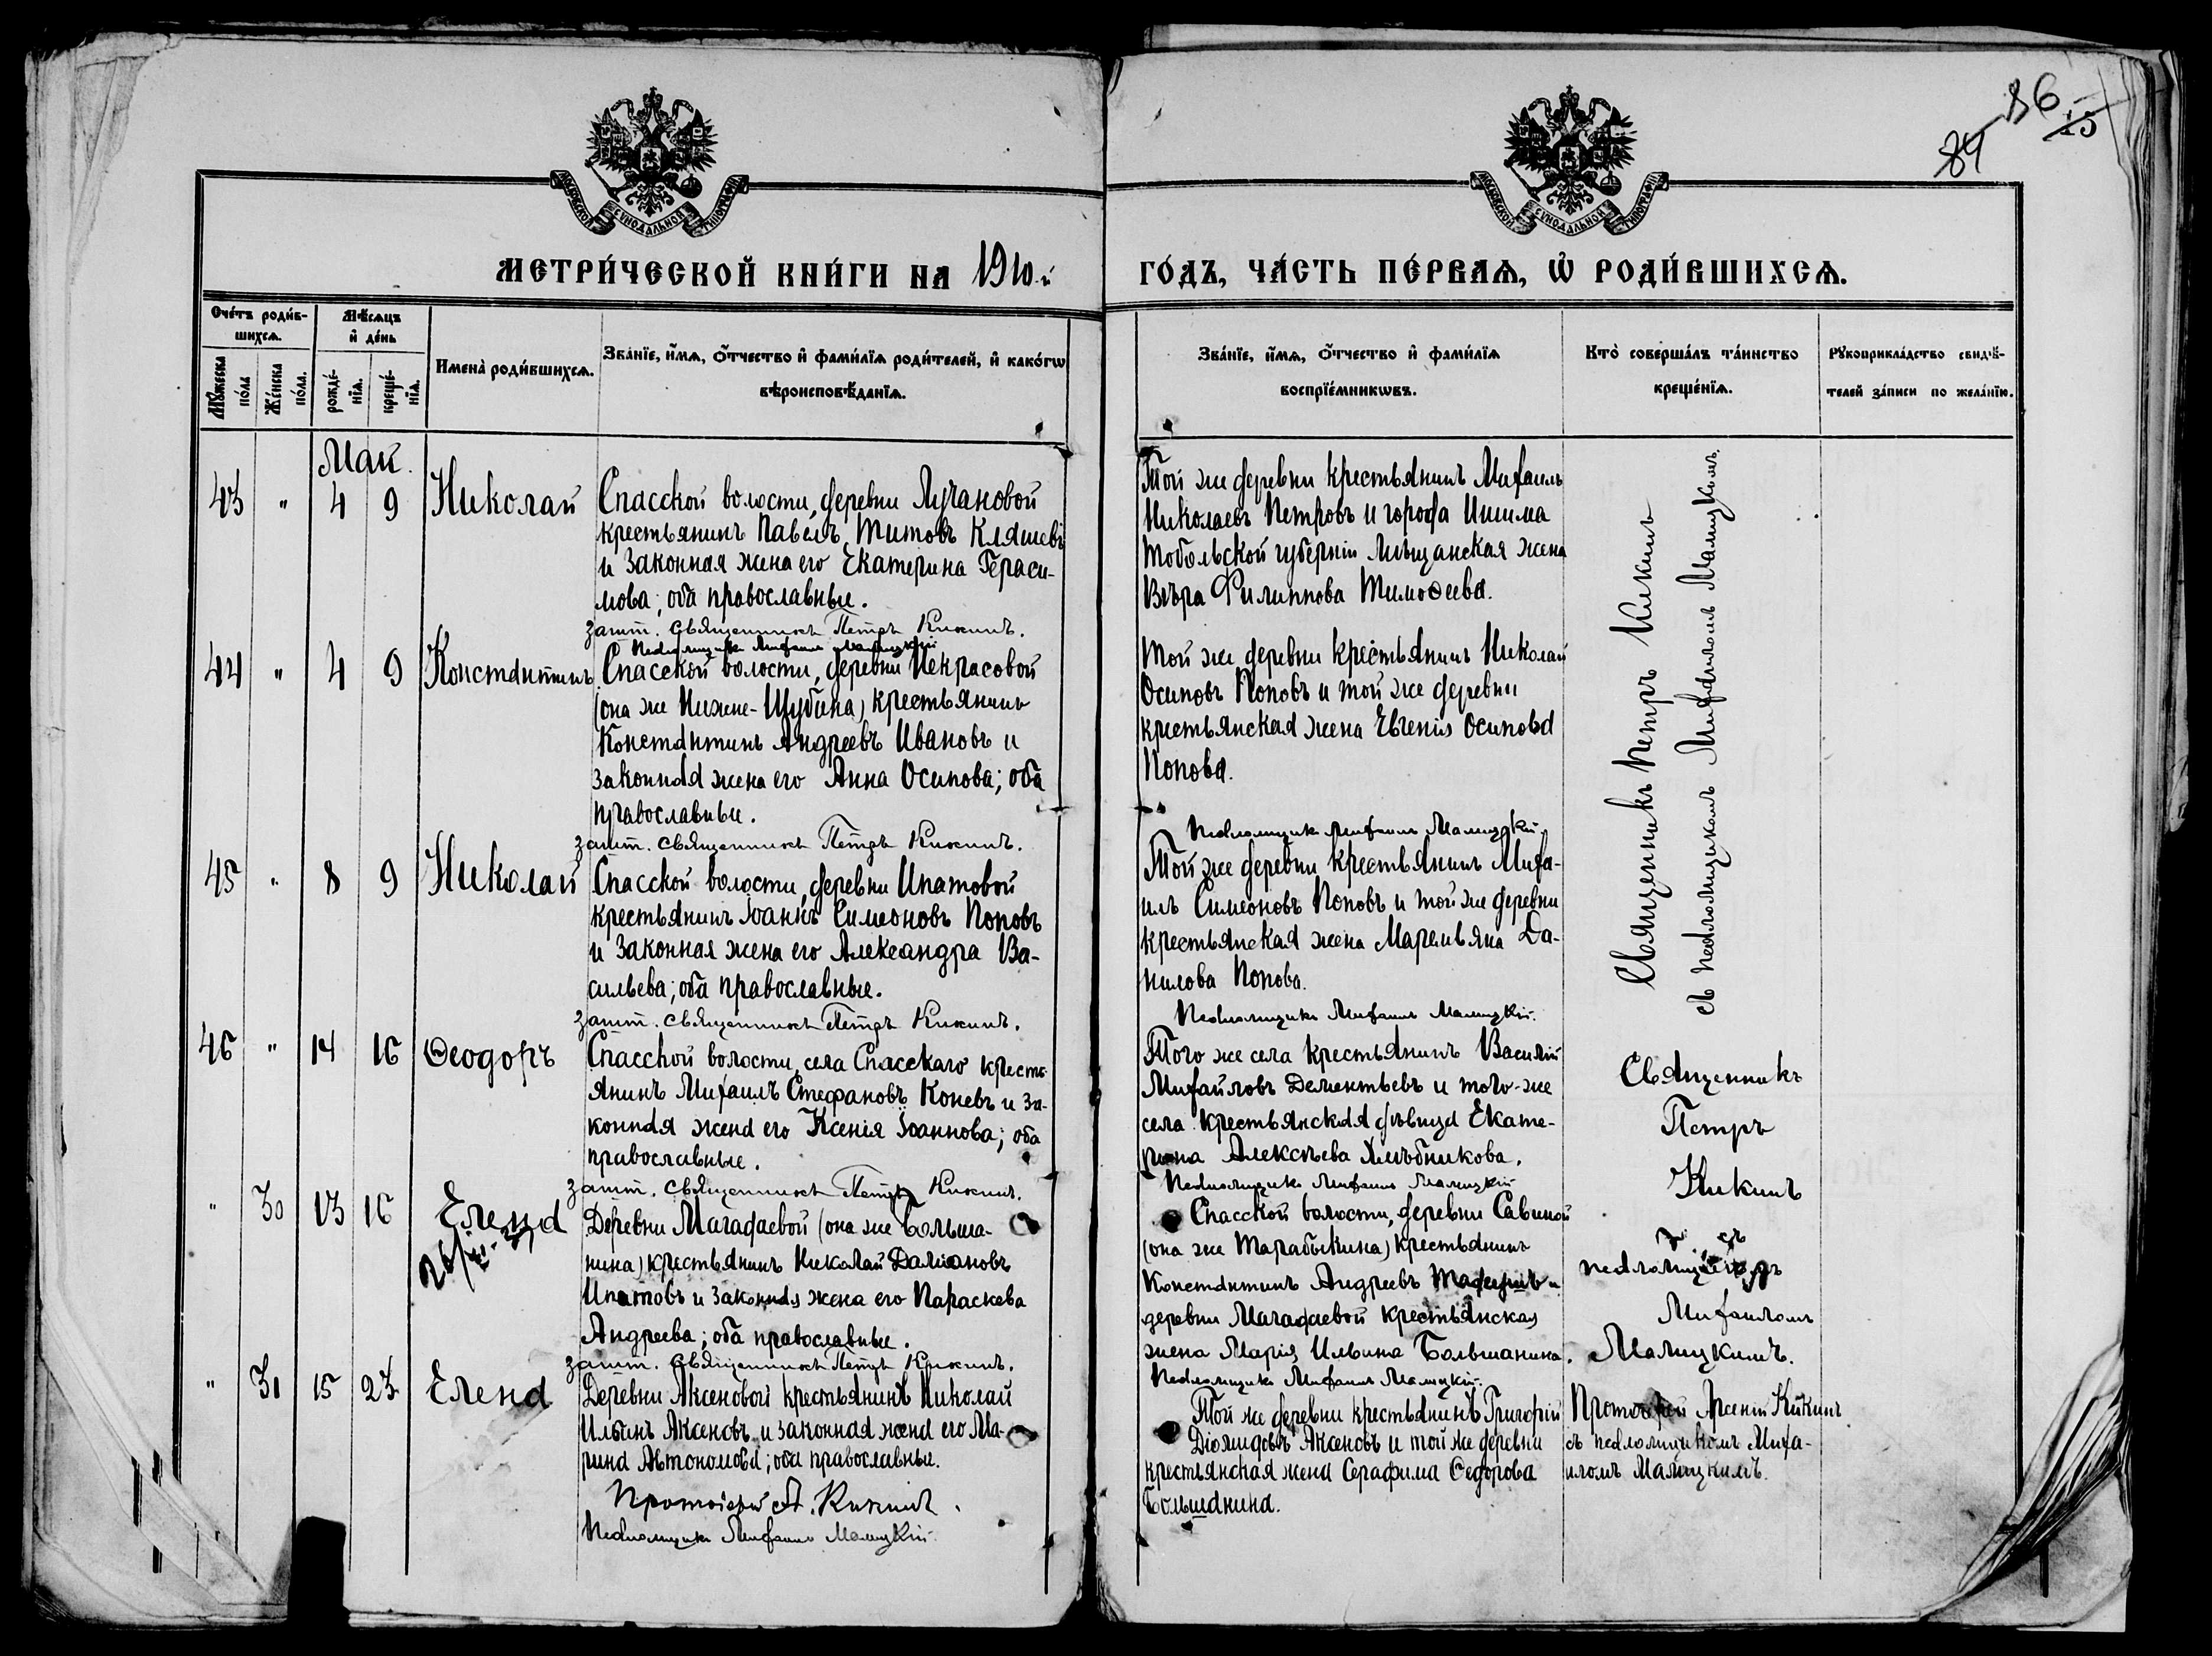 86
15
84
МОСКОВСКОЙ СѴНОДАЛЬНОЙ ТИПОГРАФІИ
МОСКОВСКОЙ СѴНОДАЛЬНОЙ ТИПОГРАФІИ
МЕТРИ́ЧЕСКОЙ КНИ́ГИ НА 1910-й ГО́ДЪ, ЧА́СТЬ ПЕ́РВАѦ, Ѡ҆ РОДИ́ВШИХСѦ.
Сче́тъ роди́в-
шихсѧ.
Мѹ́жеска
по́ла
Же́нска
по́ла.
Мѣ́сѧцъ
и҆ де́нь
рожде́-
нїѧ.
креще́-
нїѧ.
Имена̀ роди́вшихсѧ.
Зва́нїе, и҆́мѧ, ѻ҆́тчество и҆ фами́лїѧ роди́телей, и҆ како́гѡ
вѣроисповѣ́данїѧ.
Зва́нїе, и҆́мѧ, ѻ҆́тчество и҆ фами́лїѧ
воспрїе́мникѡвъ.
Кто̀ соверша́лъ та́инство
креще́нїѧ.
Рѹкоприкла́дство свидѣ́-
телей за́писи по жела́нїю.
Май.
43 " 4 9 Николай
Спасской волости, деревни Лучановой
крестьянинъ Павелъ Титовъ Кляшевъ
и законная жена его Екатерина Гераси-
мова; оба православные.
зашт. Священникъ Петръ Кикинъ.
Псаломщикъ Михаилъ Малицкій
Той же деревни крестьянинъ Михаилъ
Николаевъ Петровъ и города Ишима
Тобольской губерніи мѣщанская жена
Вѣра Филиппова Тимоѳеева.
44 " 4 9 Константинъ
Спасской волости, деревни Некрасовой
(она же Нижне-Шубина) крестьянинъ
Константинъ Андреевъ Ивановъ и
законная жена его Анна Осипова; оба
православные.
зашт. Священникъ Петръ Кикинъ.
Той же деревни крестьянинъ Николай
Осиповъ Поповъ и той же деревни
крестьянская жена Евгенія Осипова
Попова.
Псаломщикъ Михаилъ Малицкій.
45 " 8 9 Николай
Спасской волости, деревни Ипатовой
крестьянинъ Іоаннъ Симеоновъ Поповъ
и законная жена его Александра Ва-
сильева; оба православные.
зашт. Священникъ Петръ Кикинъ.
Той же деревни крестьянинъ Миха-
илъ Симеоновъ Поповъ и той же деревни
крестьянская жена Маремьяна Да-
нилова Попова.
Псаломщикъ Михаилъ Малицкій.
Священникъ Петръ Кикинъ
съ псаломщикомъ Михаиломъ Малицкимъ.
46 " 14 16 Ѳеодоръ
Спасской волости, села Спасскаго кресть-
янинъ Михаилъ Стефановъ Коневъ и за-
конная жена его Ксенія Іоаннова; оба
православные.
зашт. Священникъ Петръ Кикинъ.
Того же села крестьянинъ Василій
Михайловъ Дементьевъ и того-же
села крестьянская дѣвица Екате-
рина Алексѣева Хлѣбникова.
Псаломщикъ Михаилъ Малицкій
" 30 13 16 Елена
Деревни Магадаевой (она же Больша-
нина) крестьянинъ Николай Даміановъ
Ипатовъ и законная жена его Параскева
Андреева; оба православные.
зашт. Священникъ Петръ Кикинъ.
Спасской волости, деревни Савиной
(она же Тарабыкина) крестьянинъ
Константинъ Андреевъ и
деревни Магадаевой крестьянская
жена Марія Ильина Большанина.
Псаломщикъ Михаилъ Малицкій.
Священникъ
Петръ
Кикинъ
съ
Михаиломъ
Малицкимъ.
" 31 15 23 Елена
Деревни Аксеновой крестьянинъ Николай
Ильинъ Аксеновъ и законная жена его Ма-
рина Автономова; оба православные.
Протоіерей А. Кикинъ.
Псаломщикъ Михаилъ Малицкій.
Той же деревни крестьянинъ Григорій
Діомидовъ Аксеновъ и той же деревни
крестьянская жена Серафима Ѳедорова
Большанина.
Протоіерей Арсеній Кикинъ
съ псаломщикомъ Миха-
иломъ Малицкимъ.